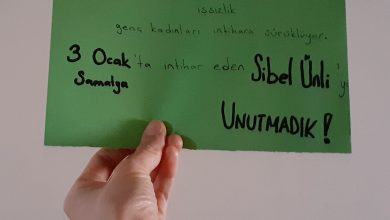 işsizlik
genç kadınları intihara sürüklüyor.
3 Ocak'ta intihar eden Sibel Ünli'yi
Samatya
UNUTMADIK!